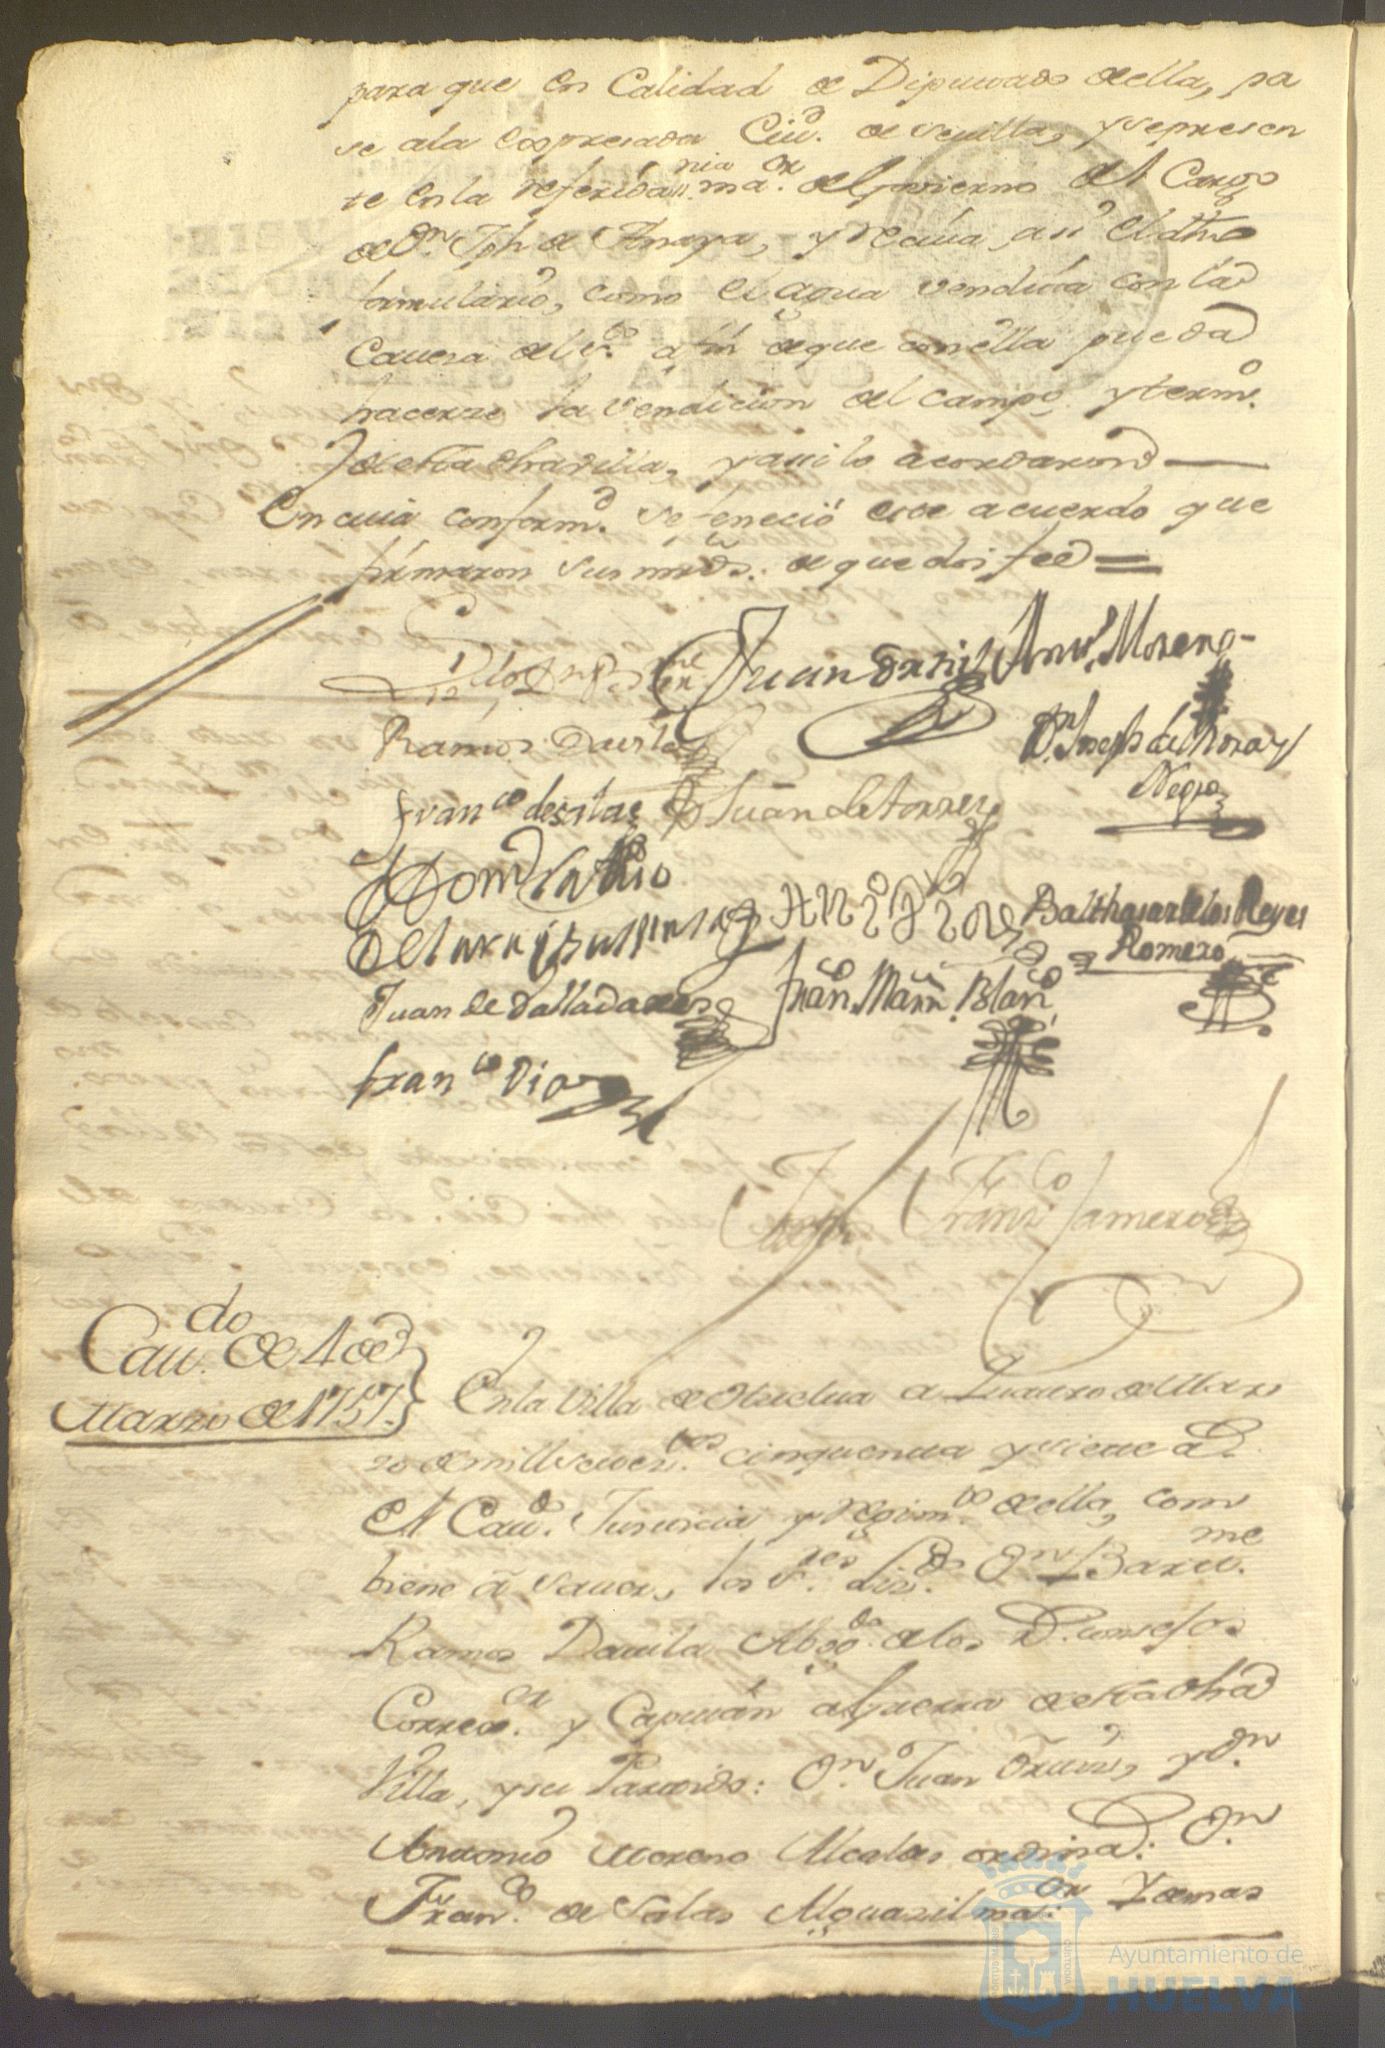 para que en Calidad de Diputado de ella, pa
se ala expresada Ciud. de Sevilla, y represen
te en la referida nia mar. del Govierno al Cargo
de Dn. Jph de Anaya, y reciva asi el dho
formulario, como el agua vendita con la
Caveza del Sto. a fin de que con ella pueda
hacerze la vendicion del campo y termo.
de esta dha villa, y assi lo acordaron
En cuia conformd. se feneció este acuerdo que
firmaron sus mrds. de que doi fee =
Ramos Davila
Juan Ortiz
Antt. Moreno
Dn. Joseph de la Rosa y
Negro
Franco de Salas
Juan de torres
Balthasar de los Reyes
Romero
Juan de Valladares
Franco. Marn. Blanco
Franco Diaz
Franco
Cavdo. de 4 de
Marzo de 1757.
En la Villa de Huelva a Quatro de Mar
zo de mill setectos. cinquenta y siete as.
el Cavdo. Justicia y regimto. de ella, com
biene â saver, los Sres. Lizdo. Dn Bartme.
Ramos Davila Abogdo. de los Rs. consejos
Corregor. y Capitán a Guerra de esta dha
Villa, y su Partido: Dn. Juan Ortiz, y Dn.
Antonio Moreno Alcaldes ordinas. Dn
Franco. de Salas Alguazil maor. Y demas
Ayuntamiento de
HUELVA